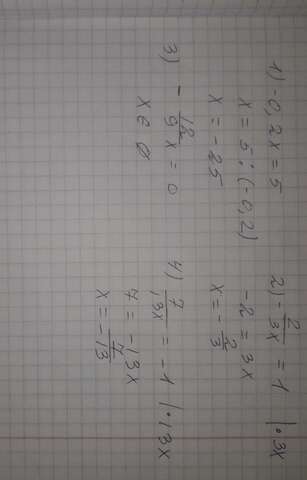 1) -0,2x = 5
x = 5 : (-0,2)
x = -25
2) - 2/3x = 1 | · 3x
-2 = 3x
x = - 2/3
3) - 12/9x = 0
x ∈ ∅
4) 7/13x = -1 | · 13x
7 = -13x
x = - 7/13